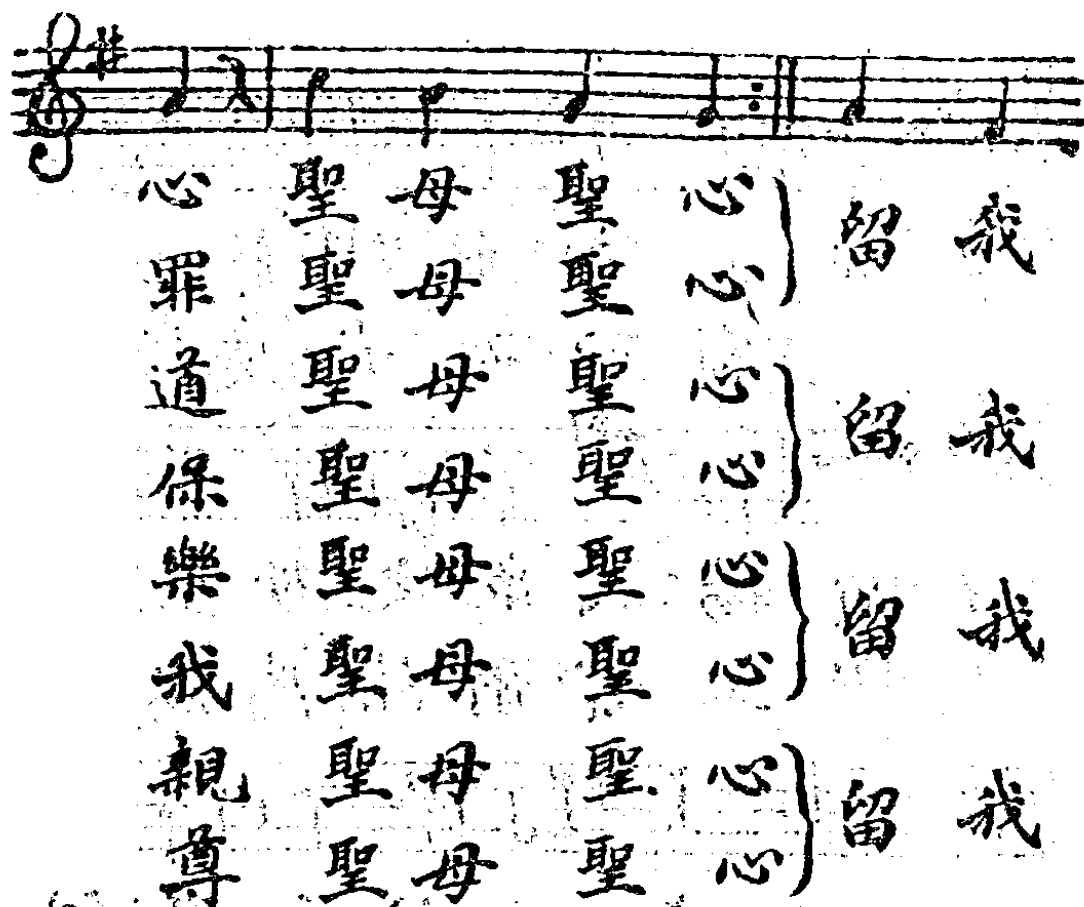 心 聖 母 聖 心
罪 聖 母 聖 心
留 我
道 聖 母 聖 心
保 聖 母 聖 心
留 我
樂 聖 母 聖 心
我 聖 母 聖 心
留 我
親 聖 母 聖 心
尊 聖 母 聖 心
留 我